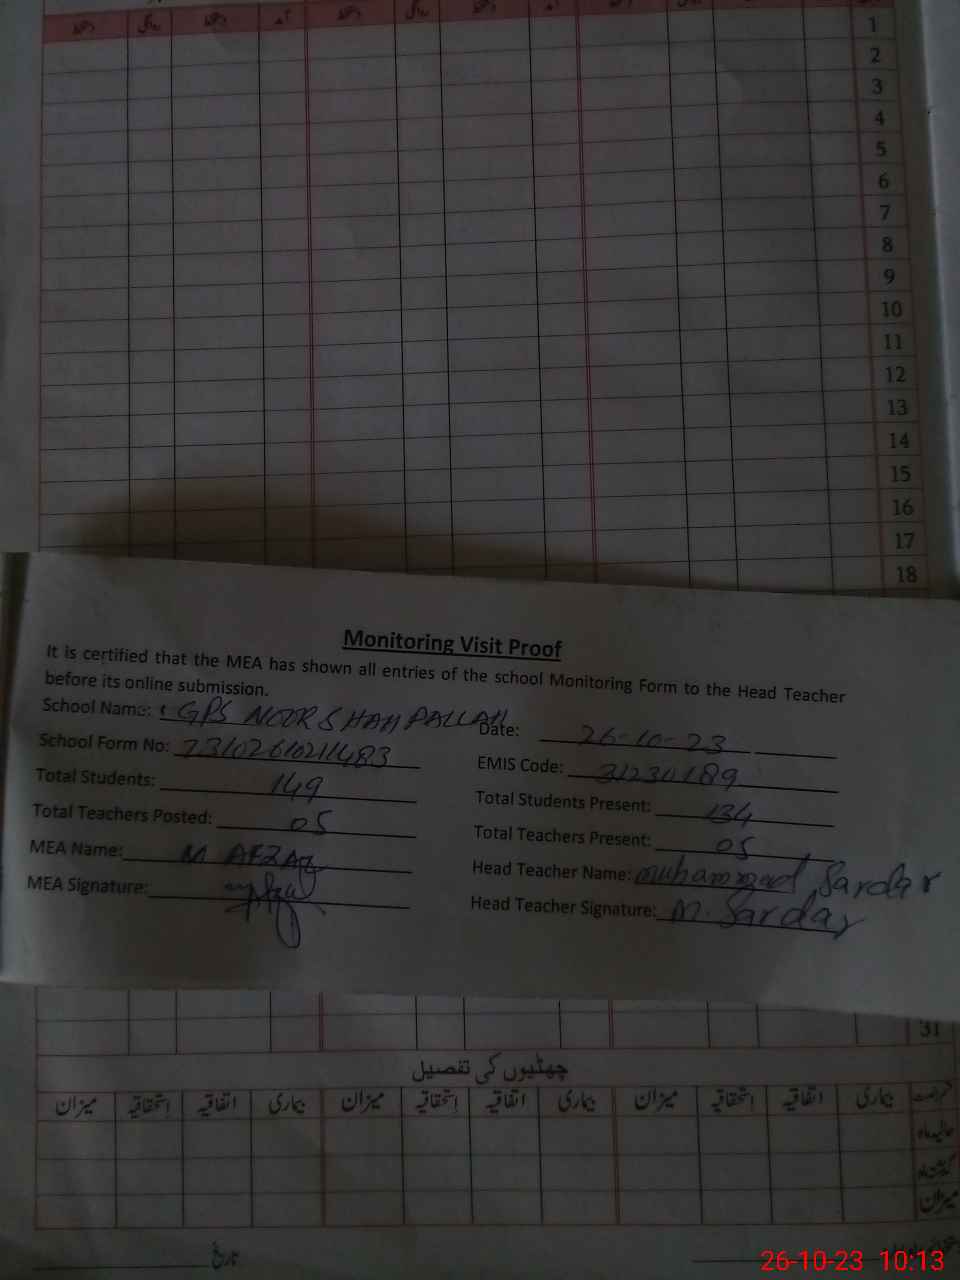 دستخط روانگی دستخط آمد دستخط روانگی دستخط آمد دستخط
1
2
3
4
5
6
7
8
9
10
11
12
13
14
15
16
17
18
Monitoring Visit Proof
It is certified that the MEA has shown all entries of the school Monitoring Form to the Head Teacher
before its online submission.
School Name: GPS NOOR SHAH PALLAH Date: 26-10-23
School Form No: 73102610211483 EMIS Code: 31230189
Total Students: 149 Total Students Present: 134
Total Teachers Posted: 05 Total Teachers Present: 05
MEA Name: M AFZAL Head Teacher Name: Muhammad Sardar
MEA Signature: Head Teacher Signature: M. Sardar
31
چھٹیوں کی تفصیل
بیماری اتفاقیہ استحقاقیہ میزان بیماری اتفاقیہ استحقاقیہ میزان بیماری اتفاقیہ استحقاقیہ میزان
حالیہ ماہ
گزشتہ ماہ
میزان
تاریخ
26-10-23 10:13